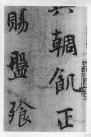 輖飢正
賜盤飧